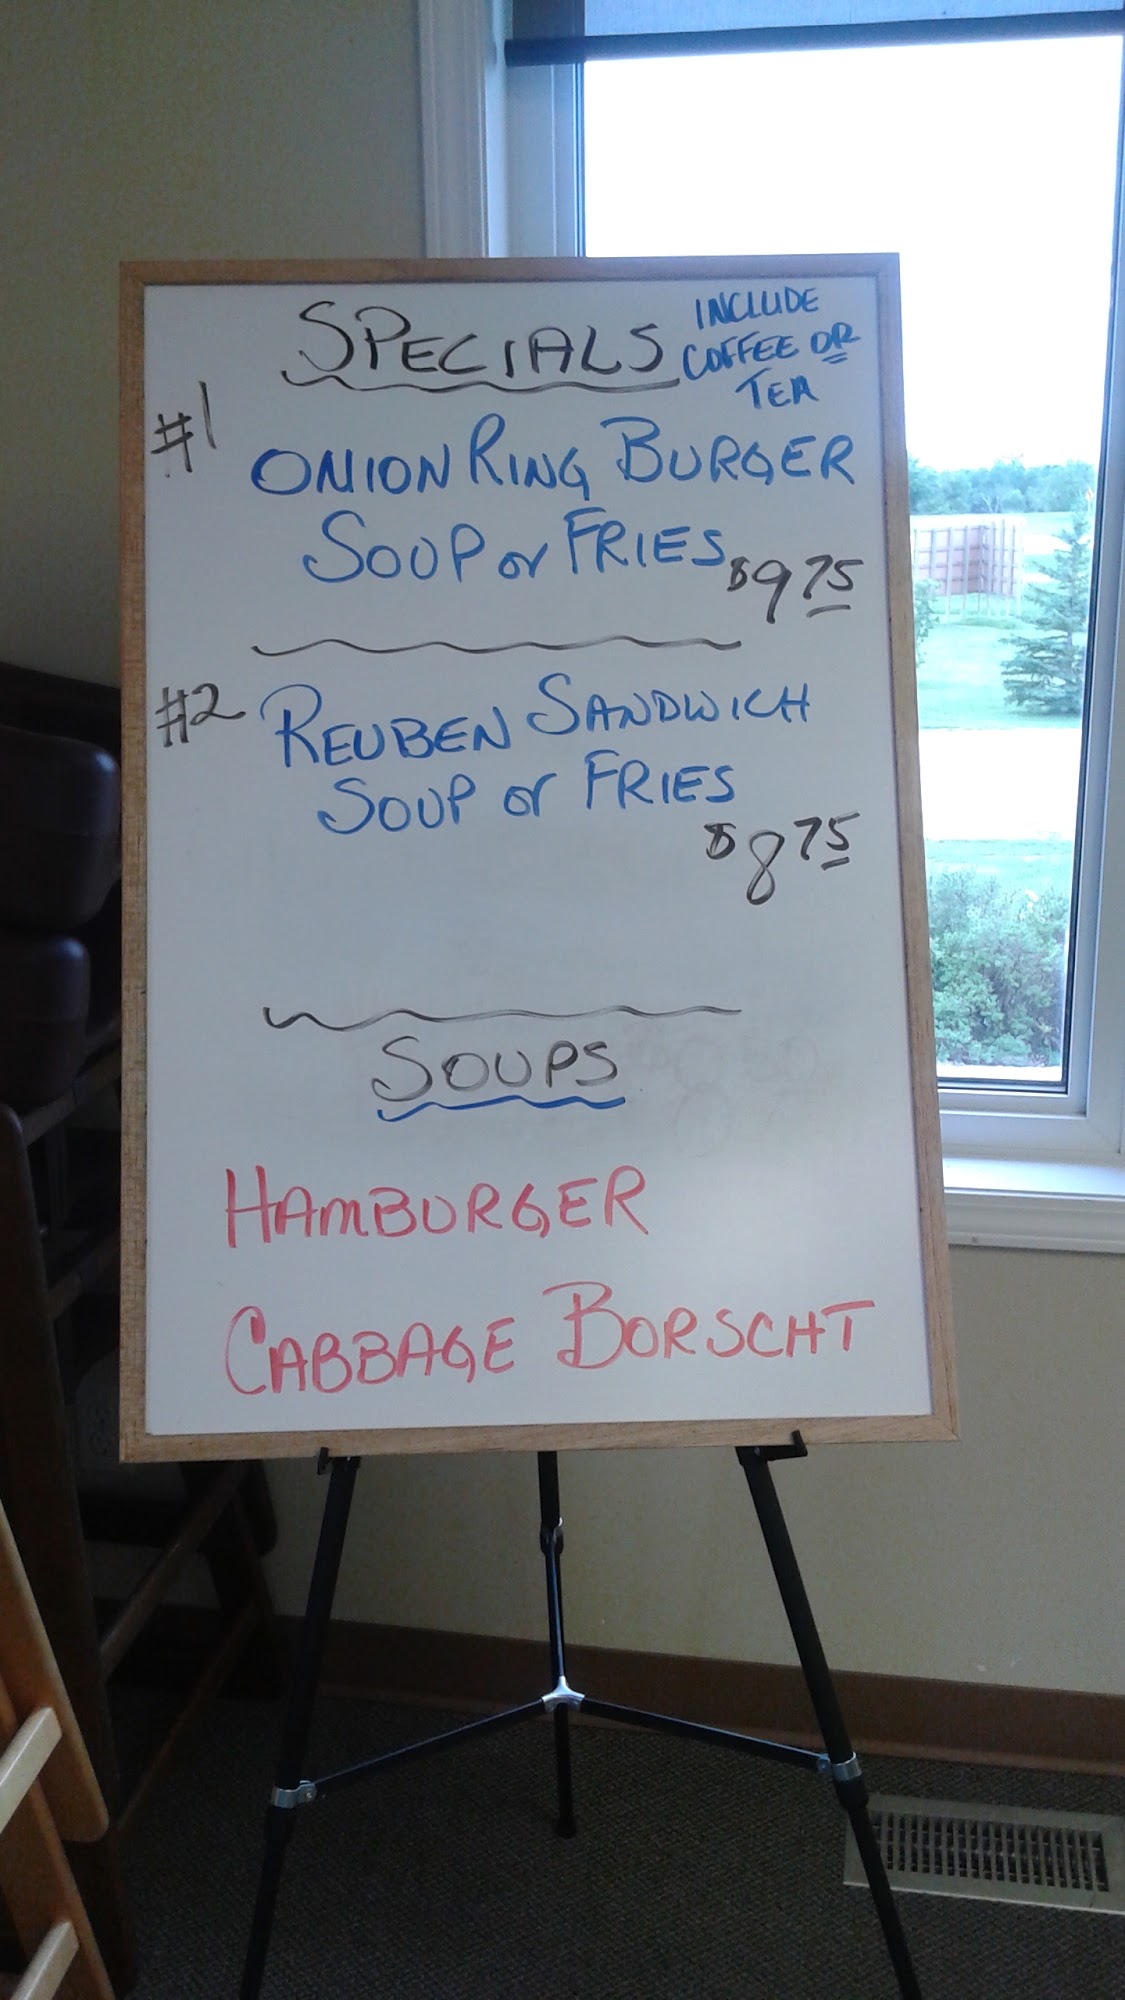 SPECIALS
INCLUDE
COFFEE OR
TEA
#1
ONION RING BURGER
SOUP or FRIES
$9 75
#2
REUBEN SANDWICH
SOUP or FRIES
$8 75
SOUPS
HAMBURGER
CABBAGE BORSCHT